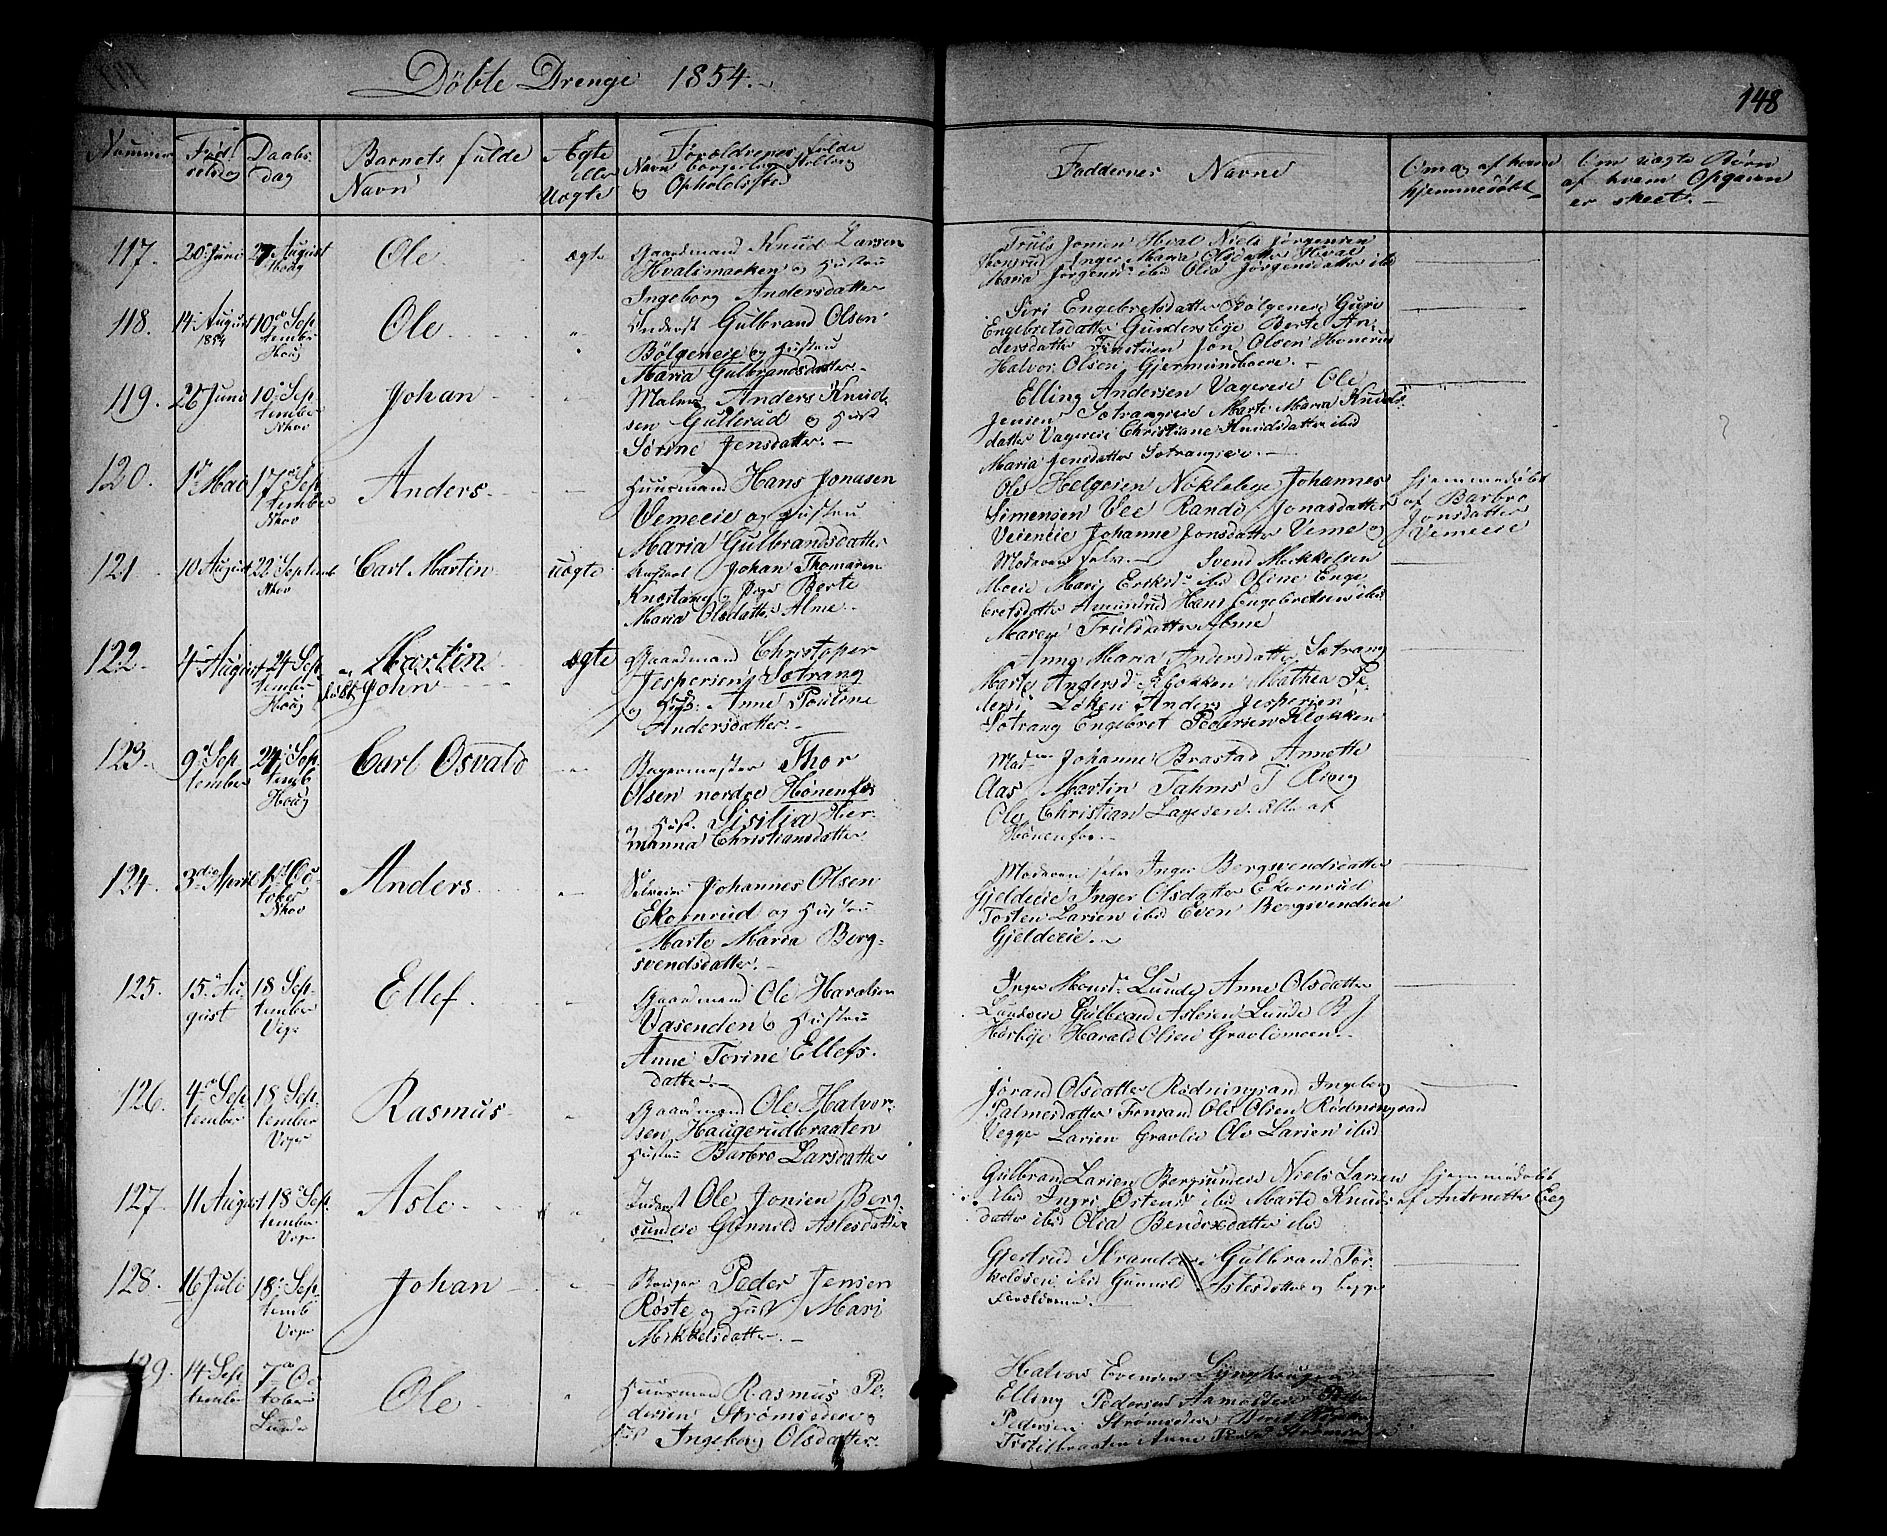 Döbte Drenge 1854.
148
Nummer
Fødselsdag
Daabsdag
Barnets fulde Navn
Ægte eller Uægte
Forældrenes fulde Navn borgerlige Stilling og Opholdssted
Faddernes Navne
Om og af hvem hjemmedøbt
Om uægte Børn af hvem Opgaven er skeet.
117. 20 Juni 27 August Houg Ole ægte
Gaardmand Knud Larsen
Hvalsmarken og Hustru
Ingeborg Andersdatter
Truls Jonsen Hval Niels Jørgensen
Honerud Inger Maria Olsdatter Hval
Maria Jørgens: ibid Olia Jørgensdatter ibid
118. 14 August 1854 10 September Houg Ole
Inderst Gulbrand Olsen
Bölgeneie og Hustru
Maria Gulbrandsdatter
Siri Engebretsdatter Bölgeneie Guri
Engebretsdatter Gunderslye Berte An-
dersdatter Jon Olsen Honerud
Halvor Olsen Gjermundboeie.
119. 26 Juni 10 September Nkov Johan
Maler Anders Knud-
sen Gullerud og Hust
Sörine Jensdatter.
Elling Andersen Vagereie Ole
Jensen Sætrangeie Marte Maria Knuds-
datter Vagereie Christiane Knudsdatter ibid
Maria Jensdatter Sætrangeie.
120. 1 Mai 17 September Nkov Anders
Huusmand Hans Jonasen
Vemeeie og Hustru
Maria Gulbrandsdatter
Ole Helgesen Nökleby Johannes
Simensen Vee Randi Jonasdatter
Veieneie Johanne Jonsdatter Veme og
Moderen selv.
Hjemmedøbt
af Barbro
Jonsdatter
Vemeeie
121 10 August 22 September Nkov Carl Martin uægte
Johan Thomasen
Knestang og Pige Berte
Maria Olsdatter Alme
Svend Mikkelsen
Moeie Mari Eriksd: ibid Oline Enge-
bretsdatter Amundrud Hans Engebretsen ibid
Maren Trulsdatter Alme
122. 4 August 24 September Houg Martin John ægte
Gaardmand Christopher
Jespersen Sætrang
og Hust: Anne Pouline
Andersdatter.
Anne Maria Andersdatter Sætrang
Marte Andersd: Klokken Mathea Pe-
ders: Löken Anders Jespersen
Sætrang Engebret Pedersen Klokken
123. 9 September 24 Septemb Houg Carl Osvald
Bagermester Thor
Olsen nordre Hönenfos
og Hust. Sisilia Her-
manna Christiansdatter
Mad Johanne Brastad Annette
Aas Martin Fahms T Ring
Ole Christian Lagesen. Alle af
Hönenfos.
124. 3die April 1 October Nkov Anders
Selveier Johannes Olsen
Ekornrud og Hustru
Marte Maria Berg-
svendsdatter.
Moderen selv Inger Bergsvendsdatter
Gjeldeeie Inger Olsdatter Ekornrud
Torsten Larsen ibid Even Bergsvendsen
Gjeldeeie.
125. 15 August 18 September Vege Ellef
Gaardmand Ole Haralsen
Vasenden og Hustru
Anne Torine Ellefs-
datter.
Inger Lunde Anne Olsdatter
Lundeeie Gulbrand Aslesen Lunde B J
Hörbye Harald Olsen Gravlimoen.
126. 4 September 18 September Veger Rasmus
Gaardmand Ole Halvor-
sen Haugerudbraaten
Hustru Barbro Larsdatter
Jörand Olsdatter Rödningsand Ingeborg
Palmesdatter Fonsand Ole Olsen Rödningsand
Vegge Larsen Gravlie Ole Larsen ibid
127. 11 August 18 September Veger Asle
Inderst Ole Jonsen Berg-
sundeie Gunnild Aslesdatter
Gulbrand Larsen Bergsundeie Niels Larsen
ibid Ingri Østens: ibid Marte Knuds-
datter ibid Olia Bendixdatter ibid
Hjemmedøbt
af Antonette Eeg
128. 16 Juli 18 Septemb Veger Johan
Peder Jensen
Röste og Hust Mari
Mikkelsdatter.
Gjertrud Strande Gulbrand Tor-
keldsen ibid Gunnild Aslesdatter og begge
Forældrene.
129. 14 September 7 October Lunde Ole
Huusmand Rasmus Pe-
dersen Strömsödere og
Ingeborg Olsdatter.
Halvor Evensen
Elling Pedersen
Pedersen Strömsödere
Anne